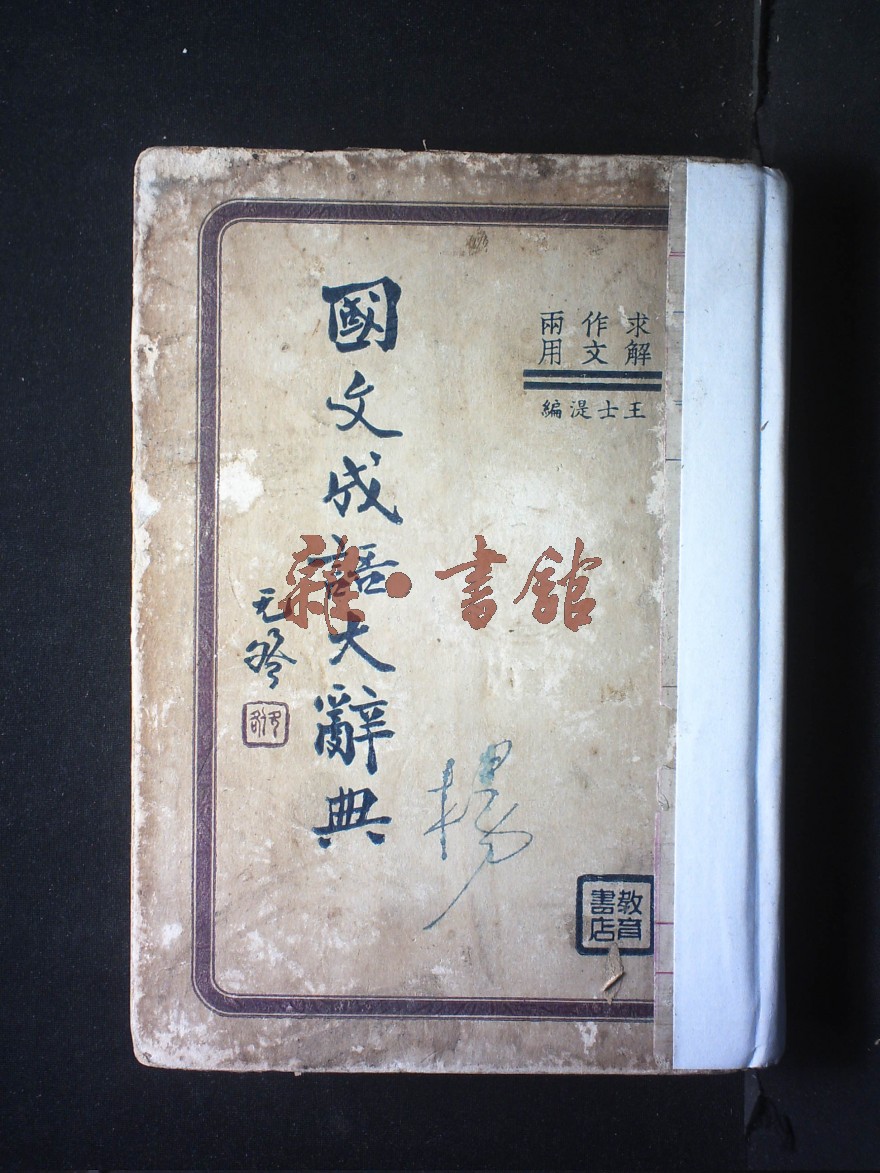 求解
作文
兩用
王士湜編
國文成語大辭典
无咎
楊
教育
書店
雜·書館